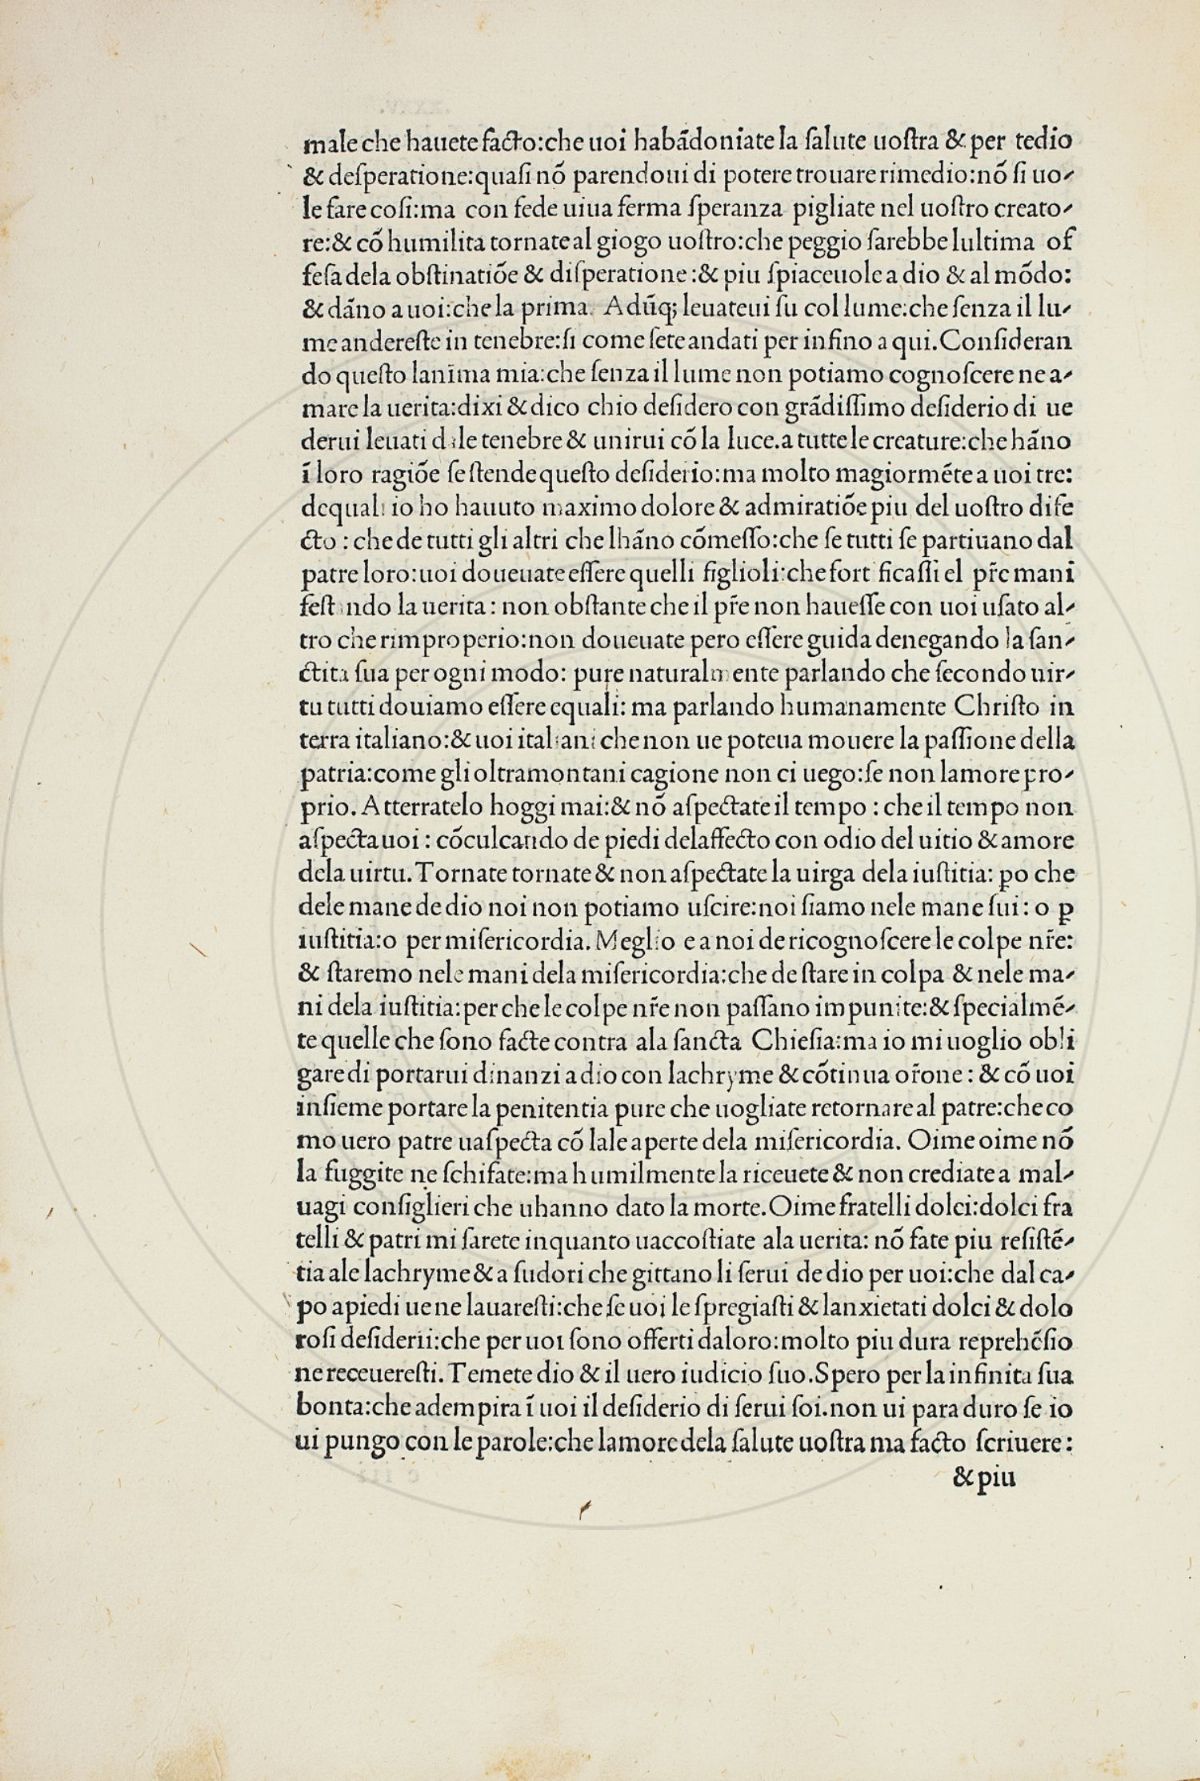 male che hauete facto:che uoi habādoniate la ſalute uoſtra & per tedio
& deſperatione:quaſi nō parendoui di potere trouare rimedio:nō ſi uo-
le fare coſi:ma con fede uiua ferma ſperanza pigliate nel uoſtro creato-
re:& cō humilita tornate al giogo uoſtro:che peggio ſarebbe lultima of
feſa dela obſtinatiōe & diſperatione:& piu ſpiaceuole a dio & al mōdo:
& dāno a uoi:che la prima. Adūq; leuateui ſu col lume:che ſenza il lu-
me andereſte in tenebre:ſi come ſete andati per infino a qui.Conſideran
do queſto lanīma mia:che ſenza il lume non potiamo cognoſcere ne a-
mare la uerita:dixi & dico chio deſidero con grādiſſimo deſiderio di ue
derui leuati dale tenebre & unirui cō la luce.a tutte le creature:che hāno
ī loro ragiōe ſe ſtende queſto deſiderio:ma molto magiormēte a uoi tre:
dequali io ho hauuto maximo dolore & admiratiōe piu del uoſtro dife
cto : che de tutti gli altri che lhāno cōmeſſo:che ſe tutti ſe partiuano dal
patre loro:uoi doueuate eſſere quelli figlioli:che fortificaſſi el pr̄e mani
feſtando la uerita : non obſtante che il pr̄e non haueſſe con uoi uſato al-
tro che rimproperio:non doueuate pero eſſere guida denegando la ſan-
ctita ſua per ogni modo: pure naturalmente parlando che ſecondo uir-
tu tutti douiamo eſſere equali: ma parlando humanamente Chriſto in
terra italiano:& uoi italiani che non ue poteua mouere la paſſione della
patria:come gli oltramontani cagione non ci uego:ſe non lamore pro-
prio. Atterratelo hoggi mai:& nō aſpectate il tempo : che il tempo non
aſpecta uoi : cōculcando de piedi delaffecto con odio del uitio & amore
dela uirtu. Tornate tornate & non aſpectate la uirga dela iuſtitia: ꝑo che
dele mane de dio noi non potiamo uſcire:noi ſiamo nele mane ſui: o ꝑ
iuſtitia:o per miſericordia. Meglio e a noi de ricognoſcere le colpe nr̄e:
& ſtaremo nele mani dela miſericordia:che de ſtare in colpa & nele ma-
ni dela iuſtitia:per che le colpe nr̄e non paſſano impunite:& ſpecialmē-
te quelle che ſono facte contra ala ſancta Chieſia:ma io mi uoglio obli
gare di portarui dinanzi a dio con lachryme & cōtinua or̄one : & cō uoi
inſieme portare la penitentia pure che uogliate retornare al patre:che co
mo uero patre uaſpecta cō lale aperte dela miſericordia. Oime oime nō
la fuggite ne ſchifate:ma humilmente la riceuete & non crediate a mal-
uagi conſiglieri che uhanno dato la morte. Oime fratelli dolci:dolci fra
telli & patri mi ſarete inquanto uaccoſtiate ala uerita: nō fate piu reſiſtē-
tia ale lachryme & a ſudori che gittano li ſerui de dio per uoi:che dal ca-
po a piedi ue ne lauareſti:che ſe uoi le ſpregiaſti & lanxietati dolci & dolo
roſi deſiderii:che per uoi ſono offerti daloro:molto piu dura reprehēſio
ne receuereſti. Temete dio & il uero iudicio ſuo.Spero per la infinita ſua
bonta:che adempira ī uoi il deſiderio di ſerui ſoi.non ui para duro ſe io
ui pungo con le parole:che lamore dela ſalute uoſtra ma facto ſcriuere:
& piu